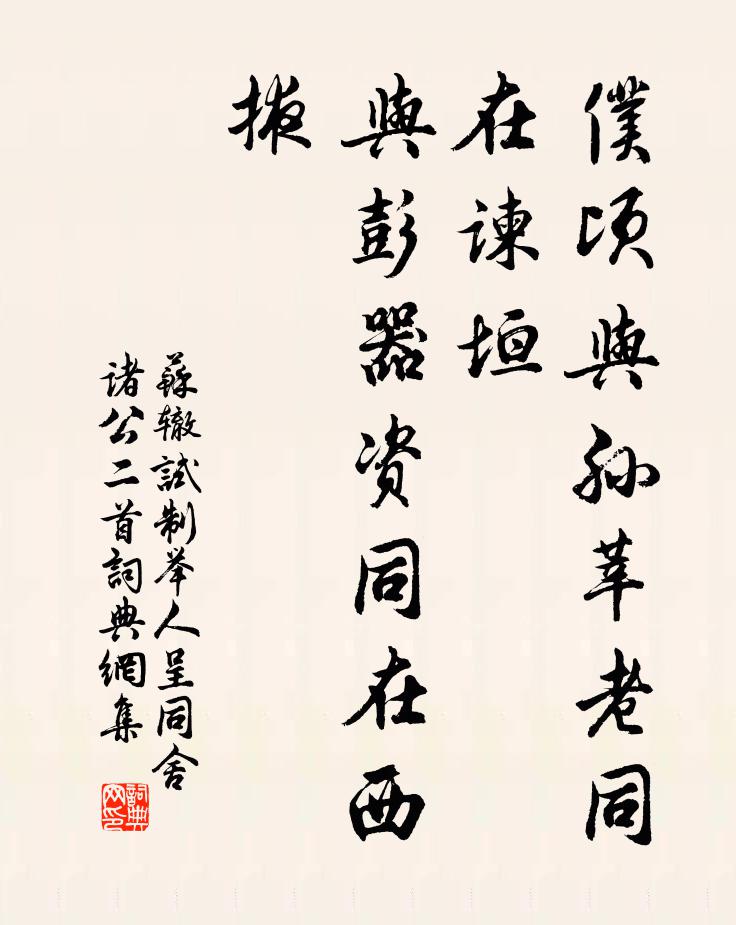 僕頃與孫莘老同
在諫垣
與彭器资同在西
掖
蘇辙試制举人呈同舍
诸公二首詞典網集
詞典网印